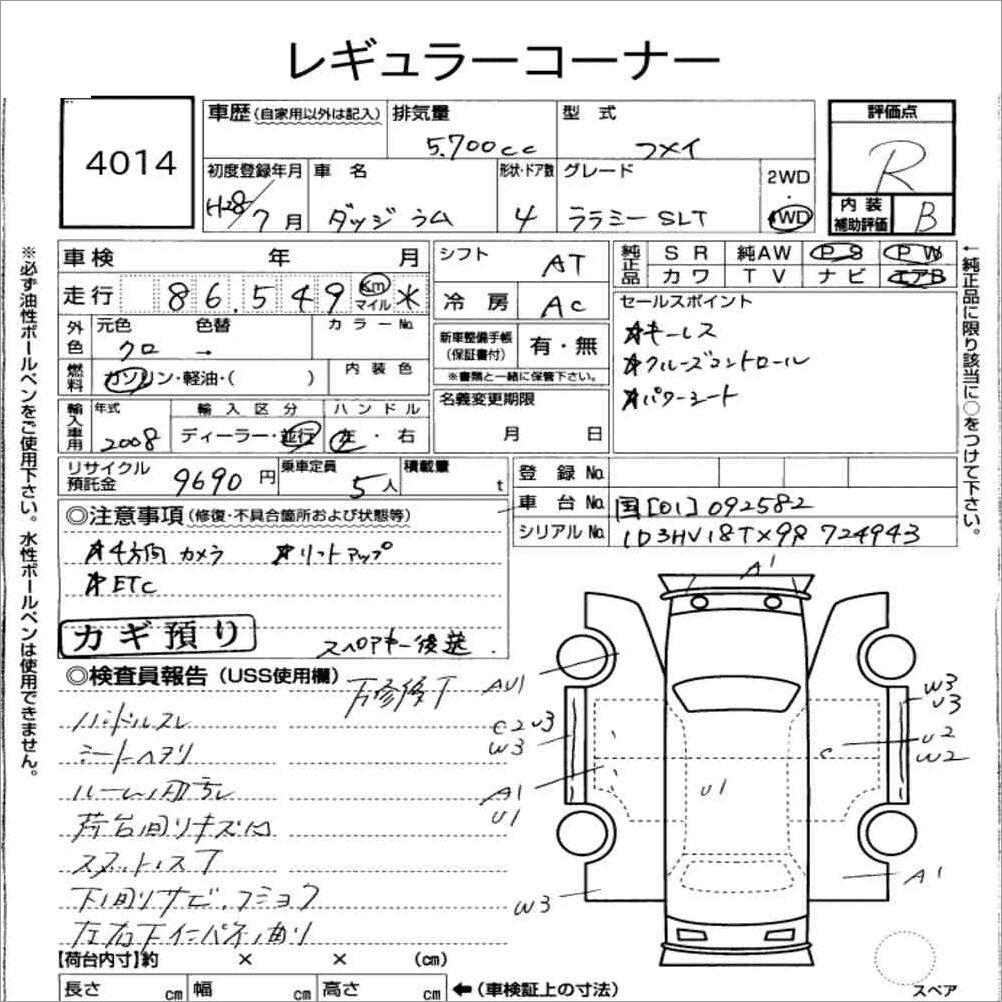 レギュラーコーナー
4014
車歴(自家用以外は記入)
排気量
5.700cc
型式
フメイ
評価点
R
初度登録年月
H28/7月
車名
ダッジ ラム
形状・ドア数
4
グレード
ララミー SLT
2WD
4WD
内装補助評価
B
車検 年 月
シフト
AT
純正品
SR 純AW PS PW
カワ TV ナビ エアB
走行
86,549 Km マイル
冷房
AC
セールスポイント
☆キーレス
☆クルーズコントロール
☆パワーシート
外色
元色 色替
クロ →
カラーNo.
新車整備手帳(保証書付)
有・無
※書類と一緒に保管下さい。
燃料
ガソリン・軽油・( )
内装色
輸入車用
年式
2008
輸入区分
ディーラー・並行
ハンドル
左・右
名義変更期限
月 日
リサイクル預託金
9690円
乗車定員
5人
積載量
t
登録No.
車台No.
国[01]092582
シリアルNo.
1D3HV18TX9
724943
◎注意事項(修復・不具合箇所および状態等)
☆4方向カメラ ☆リフトアップ
☆ETC
カギ預り
スペアキー後送.
◎検査員報告(USS使用欄)
ハンドルスレ
シートヘタリ
荷台回りキズ凹
下回りサビ、
【荷台内寸】約 × × (cm)
長さ cm 幅 cm 高さ cm
←(車検証上の寸法)
A1
AU1
C2 U3
W3
A1
U1
W3
U1
C
W3
U3
U2
W2
A1
スペア
※必ず油性ボールペンをご使用下さい。水性ボールペンは使用できません。
←純正品に限り該当に○をつけて下さい。